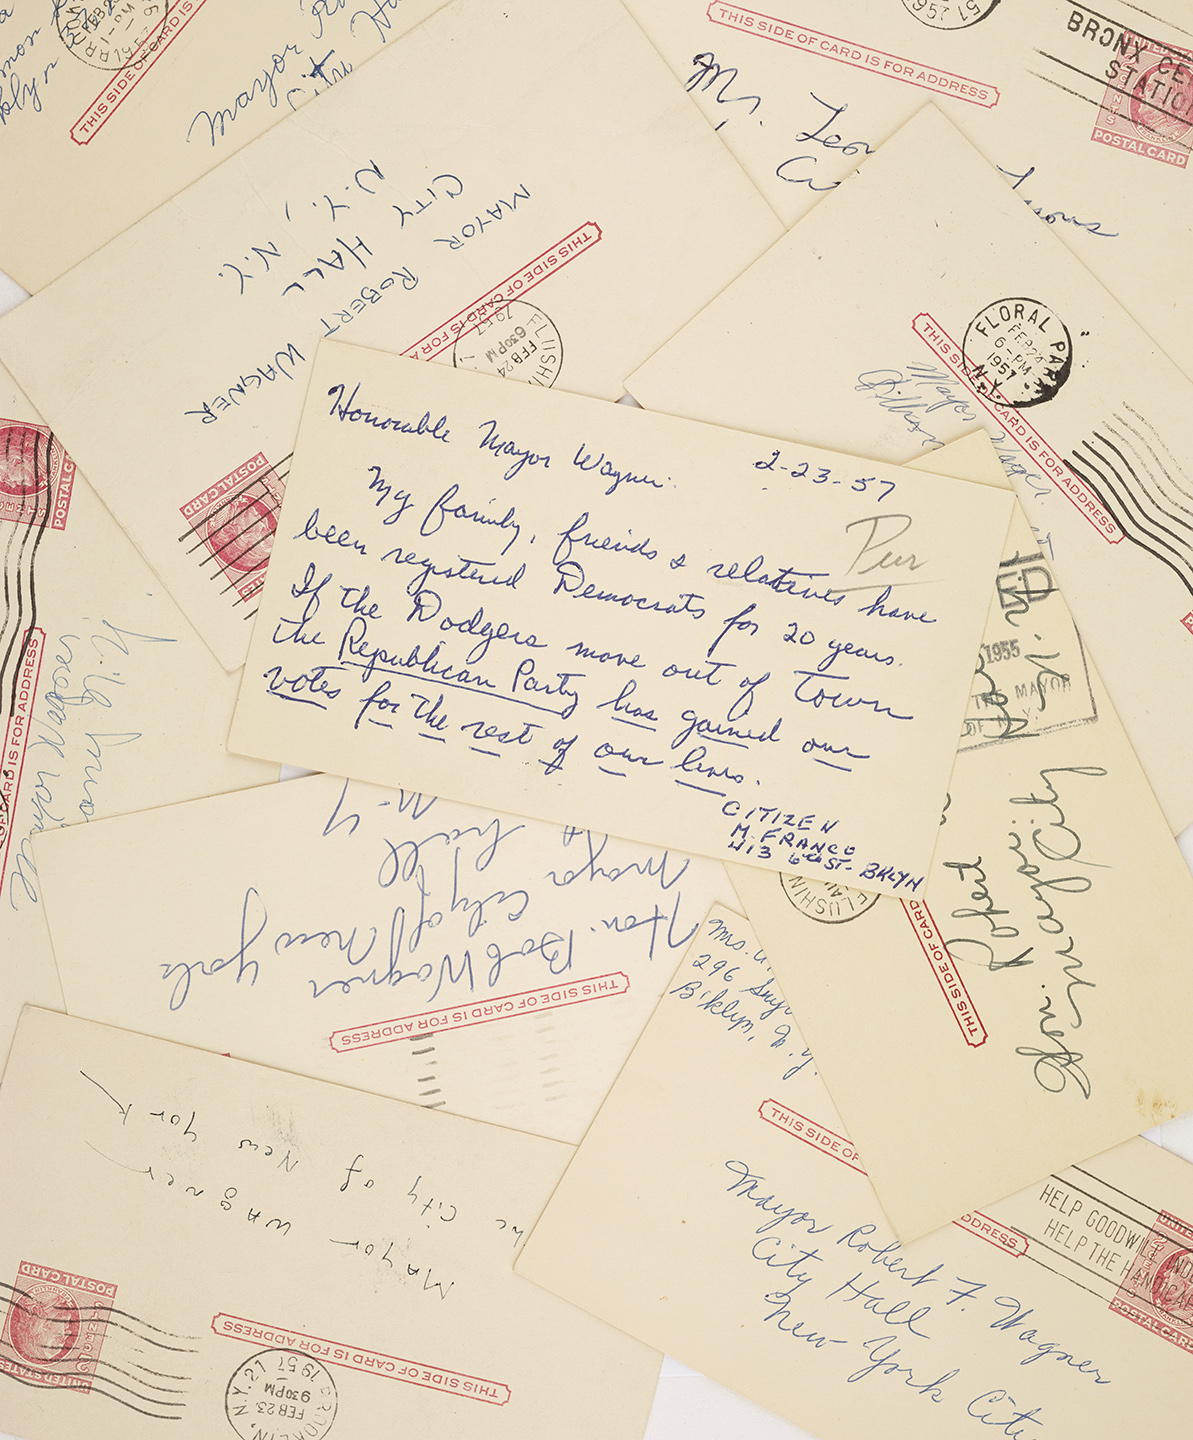 Honorable Mayor Wagner.
2-23-57
Pur
My family, friends & relatives have
been registered Democrats for 20 years.
If the Dodgers move out of town
the Republican Party has gained our
votes for the rest of our lives.
CITIZEN
M. FRANCO
413 6th ST- BKLYN
THIS SIDE OF CARD IS FOR ADDRESS
Mayor
THIS SIDE OF CARD IS FOR ADDRESS
Mr.
1957
BRONX CE
STATION
POSTAL CARD
MAYOR ROBERT WAGNER
CITY HALL
N.Y., N.Y.
THIS SIDE OF CARD IS FOR A
FLUSHIN
FEB 24
630PM
1957
POSTAL CARD
FLORAL PARK
FEB 24
6-PM
1957
N.Y.
THIS SIDE OF CARD IS FOR ADDRESS
Mayor Wagner
POSTAL
OF CARD IS FOR ADDRESS
1955
THE MAYOR
Hon. Robert
Mayor:
City
THIS SIDE OF CARD IS FOR
FLUSHIN
Hon. Bob Wagner
Mayor City of New York
City Hall
N.Y
THIS SIDE OF CARD IS FOR ADDRESS
Mrs.
296
B'klyn, N.Y.
THIS SIDE OF
Mayor Robert F. Wagner
City Hall
New York City
DDRESS
HELP GOODWILL IND
HELP THE HANDICAP
POSTAL CARD
Mayor Wagner
City of New York
THIS SIDE OF CARD IS FOR ADDRESS
BROOKLYN, N.Y. 27
FEB 23
930PM
1957
POSTAL CARD
UNITED STATES